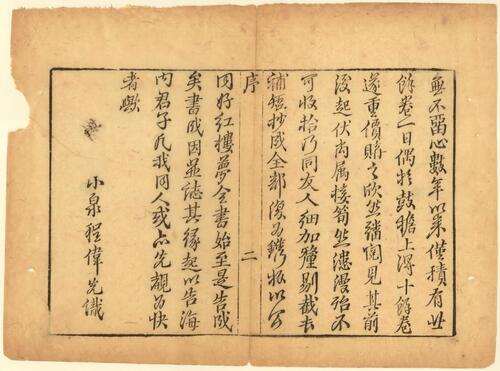 無不畱心數年以來僅積有廿
餘卷一日偶於鼓擔上得十餘卷
遂重價購之欣然繙閱見其前
後起伏尚属接筍然漶漫殆不
可收拾乃同友人細加釐剔截長
補短抄成全部復為鐫板以公
序 二
同好紅樓夢全書始至是告成
矣書成因並誌其緣起以告海
內君子凡我同人或亦先覩為快
者歟
小泉程偉元識